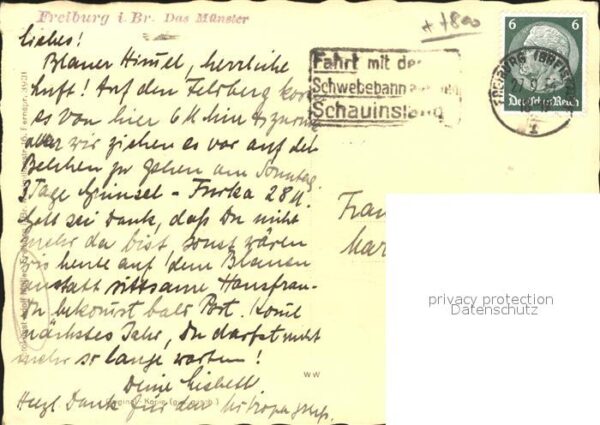 Freiburg i. Br. Das Münster
Liebes!
Blauer Himmel, herrliche
Luft! Auf den Feldberg kost
es von hier 6 M hin & zurück
aber wir ziehen es vor auf den
Belchen zu gehen am Sonntag.
3 Tage Grimsel - Furka 28 M.
Gott sei Dank, daß Du nicht
mehr da bist, sonst wären
wir heute auf dem Blauen
anstatt sittsame Hausfrau-
Du bekommst bald Post. Komm
nächstes Jahr, Du darfst nicht
mehr so lange warten!
Deine Lisbeth
Herzl. Dank für den
+ +800
Fahrt mit der
Schwebebahn
Schauinsland
6
Deutsches Reich
FREIBURG (BREISGAU)
Frau
Mar
WW
privacy protection
Datenschutz